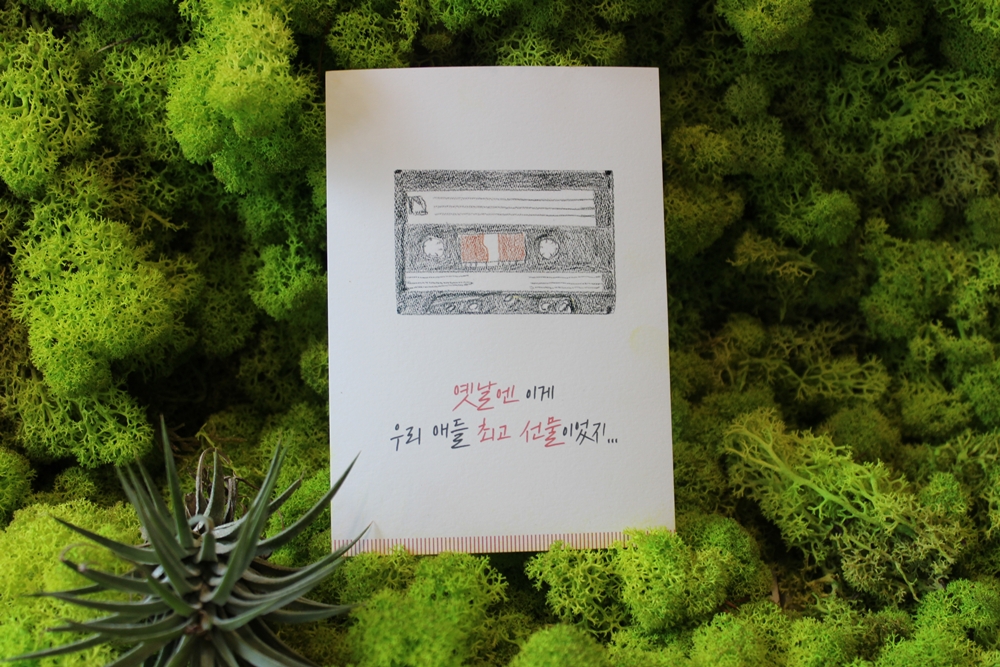 옛날엔 이게
우리 애들 최고 선물이었지...